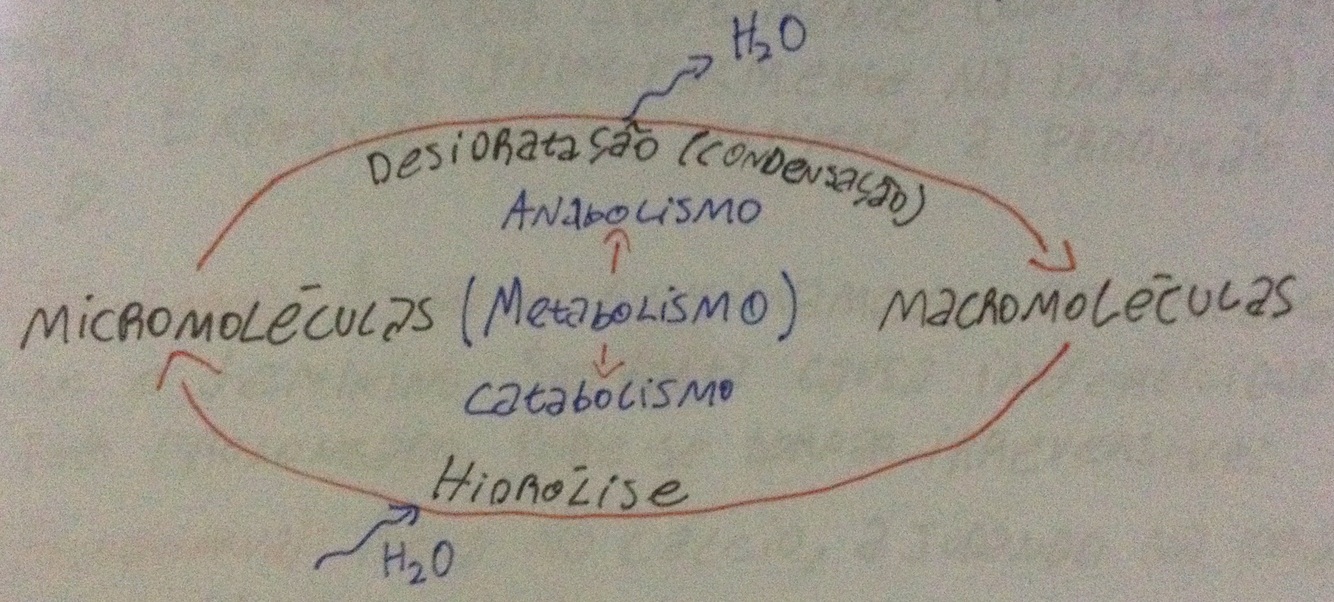 H₂O
Desidratação (condensação)
Anabolismo
Micromoléculas (Metabolismo) Macromoléculas
Catabolismo
Hidrólise
H₂O